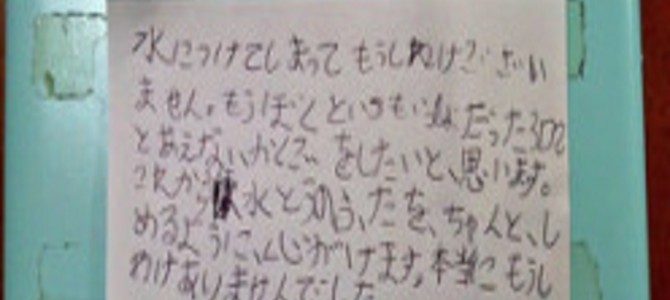 水につけてしまって もうしぬけござい
ません。もうぼくといつもいっしょだった3DS
とあえないかくごをしたいと、思います。
これから 水とうのふたを、ちゃんと、し
めるように、心がけます。本当にもうし
わけありませんでした